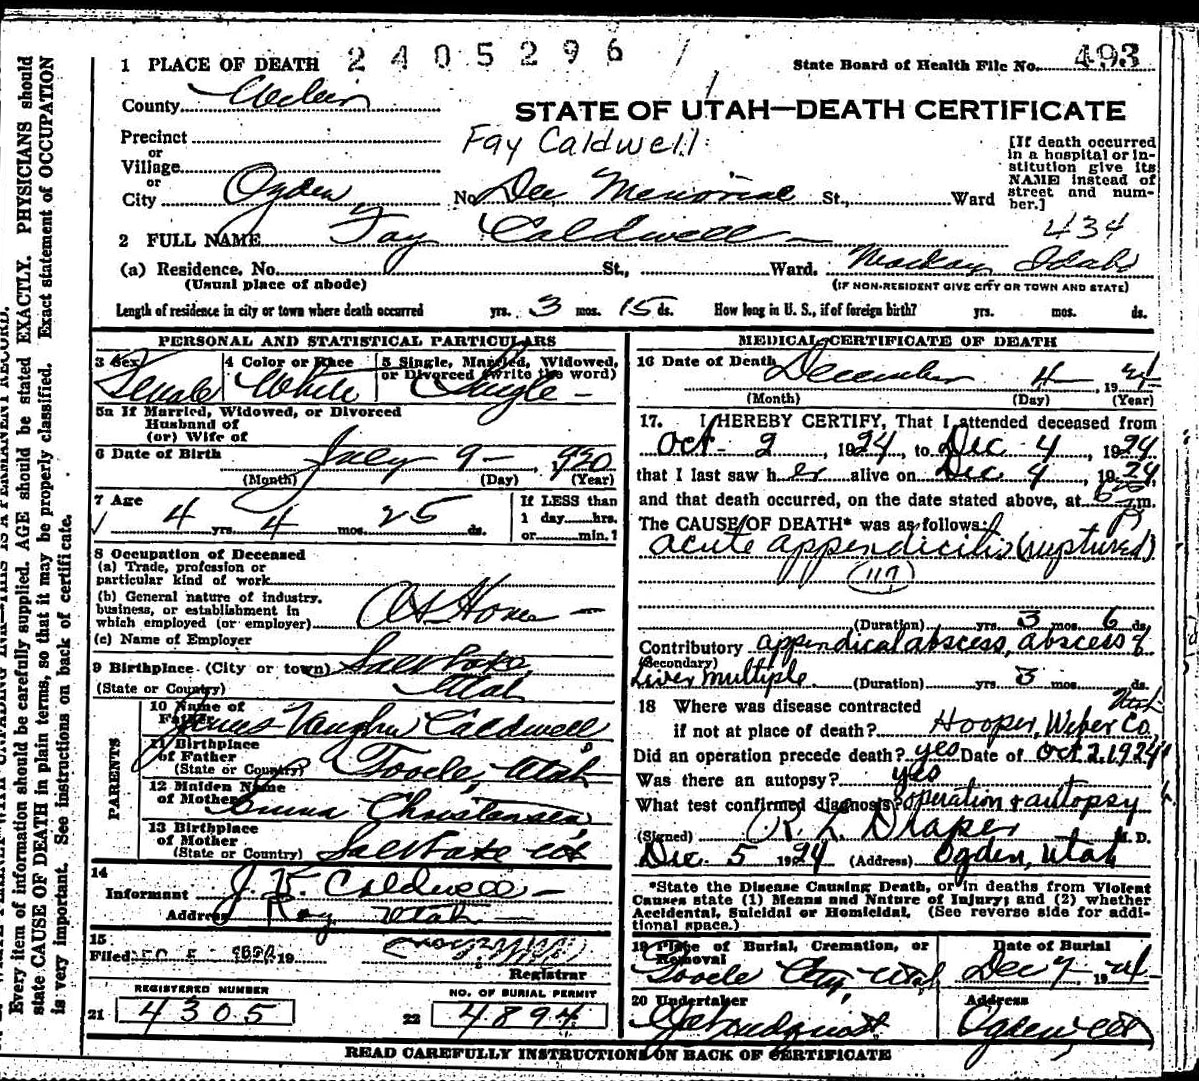 2405296
1 PLACE OF DEATH
State Board of Health File No. 493
County Weber
STATE OF UTAH—DEATH CERTIFICATE
Precinct
Fay Caldwell
or
Village
or
City Ogden No. Dee Memorial St., Ward
[If death occurred in a hospital or in-
stitution give its
NAME instead of
street and num-
ber.]
434
2 FULL NAME Fay Caldwell
(a) Residence, No. St., Ward. Mackay Idaho
(Usual place of abode) (IF NON-RESIDENT GIVE CITY OR TOWN AND STATE)
Length of residence in city or town where death occurred yrs. 3 mos. 15 ds. How long in U. S., if of foreign birth? yrs. mos. ds.
PERSONAL AND STATISTICAL PARTICULARS
3 Sex 4 Color or Race 5 Single, Married, Widowed,
or Divorced (write the word)
Female White Single
5a If Married, Widowed, or Divorced
Husband of
(or) Wife of
6 Date of Birth July 9 1920
(Month) (Day) (Year)
7 Age If LESS than
4 yrs. 4 mos. 25 ds. 1 day hrs.
or min.?
8 Occupation of Deceased
(a) Trade, profession or
particular kind of work
(b) General nature of industry,
business, or establishment in
which employed (or employer) At Home
(c) Name of Employer
9 Birthplace (City or town) Salt Lake
(State or Country) Utah
PARENTS
10 Name of
Father James Vaughn Caldwell
11 Birthplace
of Father
(State or Country) Tooele, Utah
12 Maiden Name
of Mother Emma Christensen
13 Birthplace
of Mother
(State or Country) Salt Lake Ut
14
Informant J. V. Caldwell
Address Roy Utah
15
Filed DEC 5 1924 19
Registrar
REGISTERED NUMBER NO. OF BURIAL PERMIT
21 4305 22 4894
MEDICAL CERTIFICATE OF DEATH
16 Date of Death December 4 1924
(Month) (Day) (Year)
17. I HEREBY CERTIFY, That I attended deceased from
Oct 2, 1924, to Dec 4, 1924
that I last saw her alive on Dec. 4, 1924
and that death occurred, on the date stated above, at 6 P m.
The CAUSE OF DEATH* was as follows:
acute appendicitis (ruptured)
117
(Duration) yrs. 3 mos. 6 ds.
Contributory appendical abscess, abscess of
(Secondary)
Liver multiple (Duration) yrs. 3 mos. ds.
18 Where was disease contracted Utah
if not at place of death? Hooper, Weber Co.
Did an operation precede death? yes Date of Oct 2, 1924
Was there an autopsy? yes
What test confirmed diagnosis? operation & autopsy
(Signed) R. L. Draper M. D.
Dec. 5 1924 (Address) Ogden, Utah
*State the Disease Causing Death, or in deaths from Violent
Causes state (1) Means and Nature of Injury; and (2) whether
Accidental, Suicidal or Homicidal. (See reverse side for addi-
tional space.)
19 Place of Burial, Cremation, or
Removal
Date of Burial
Tooele City, Utah Dec 7 1924
20 Undertaker Address
Ogden, Ut
READ CAREFULLY INSTRUCTIONS ON BACK OF CERTIFICATE
Every item of information should be carefully supplied. AGE should be stated EXACTLY. PHYSICIANS should
state CAUSE OF DEATH in plain terms, so that it may be properly classified. Exact statement of OCCUPATION
is very important. See instructions on back of certificate.